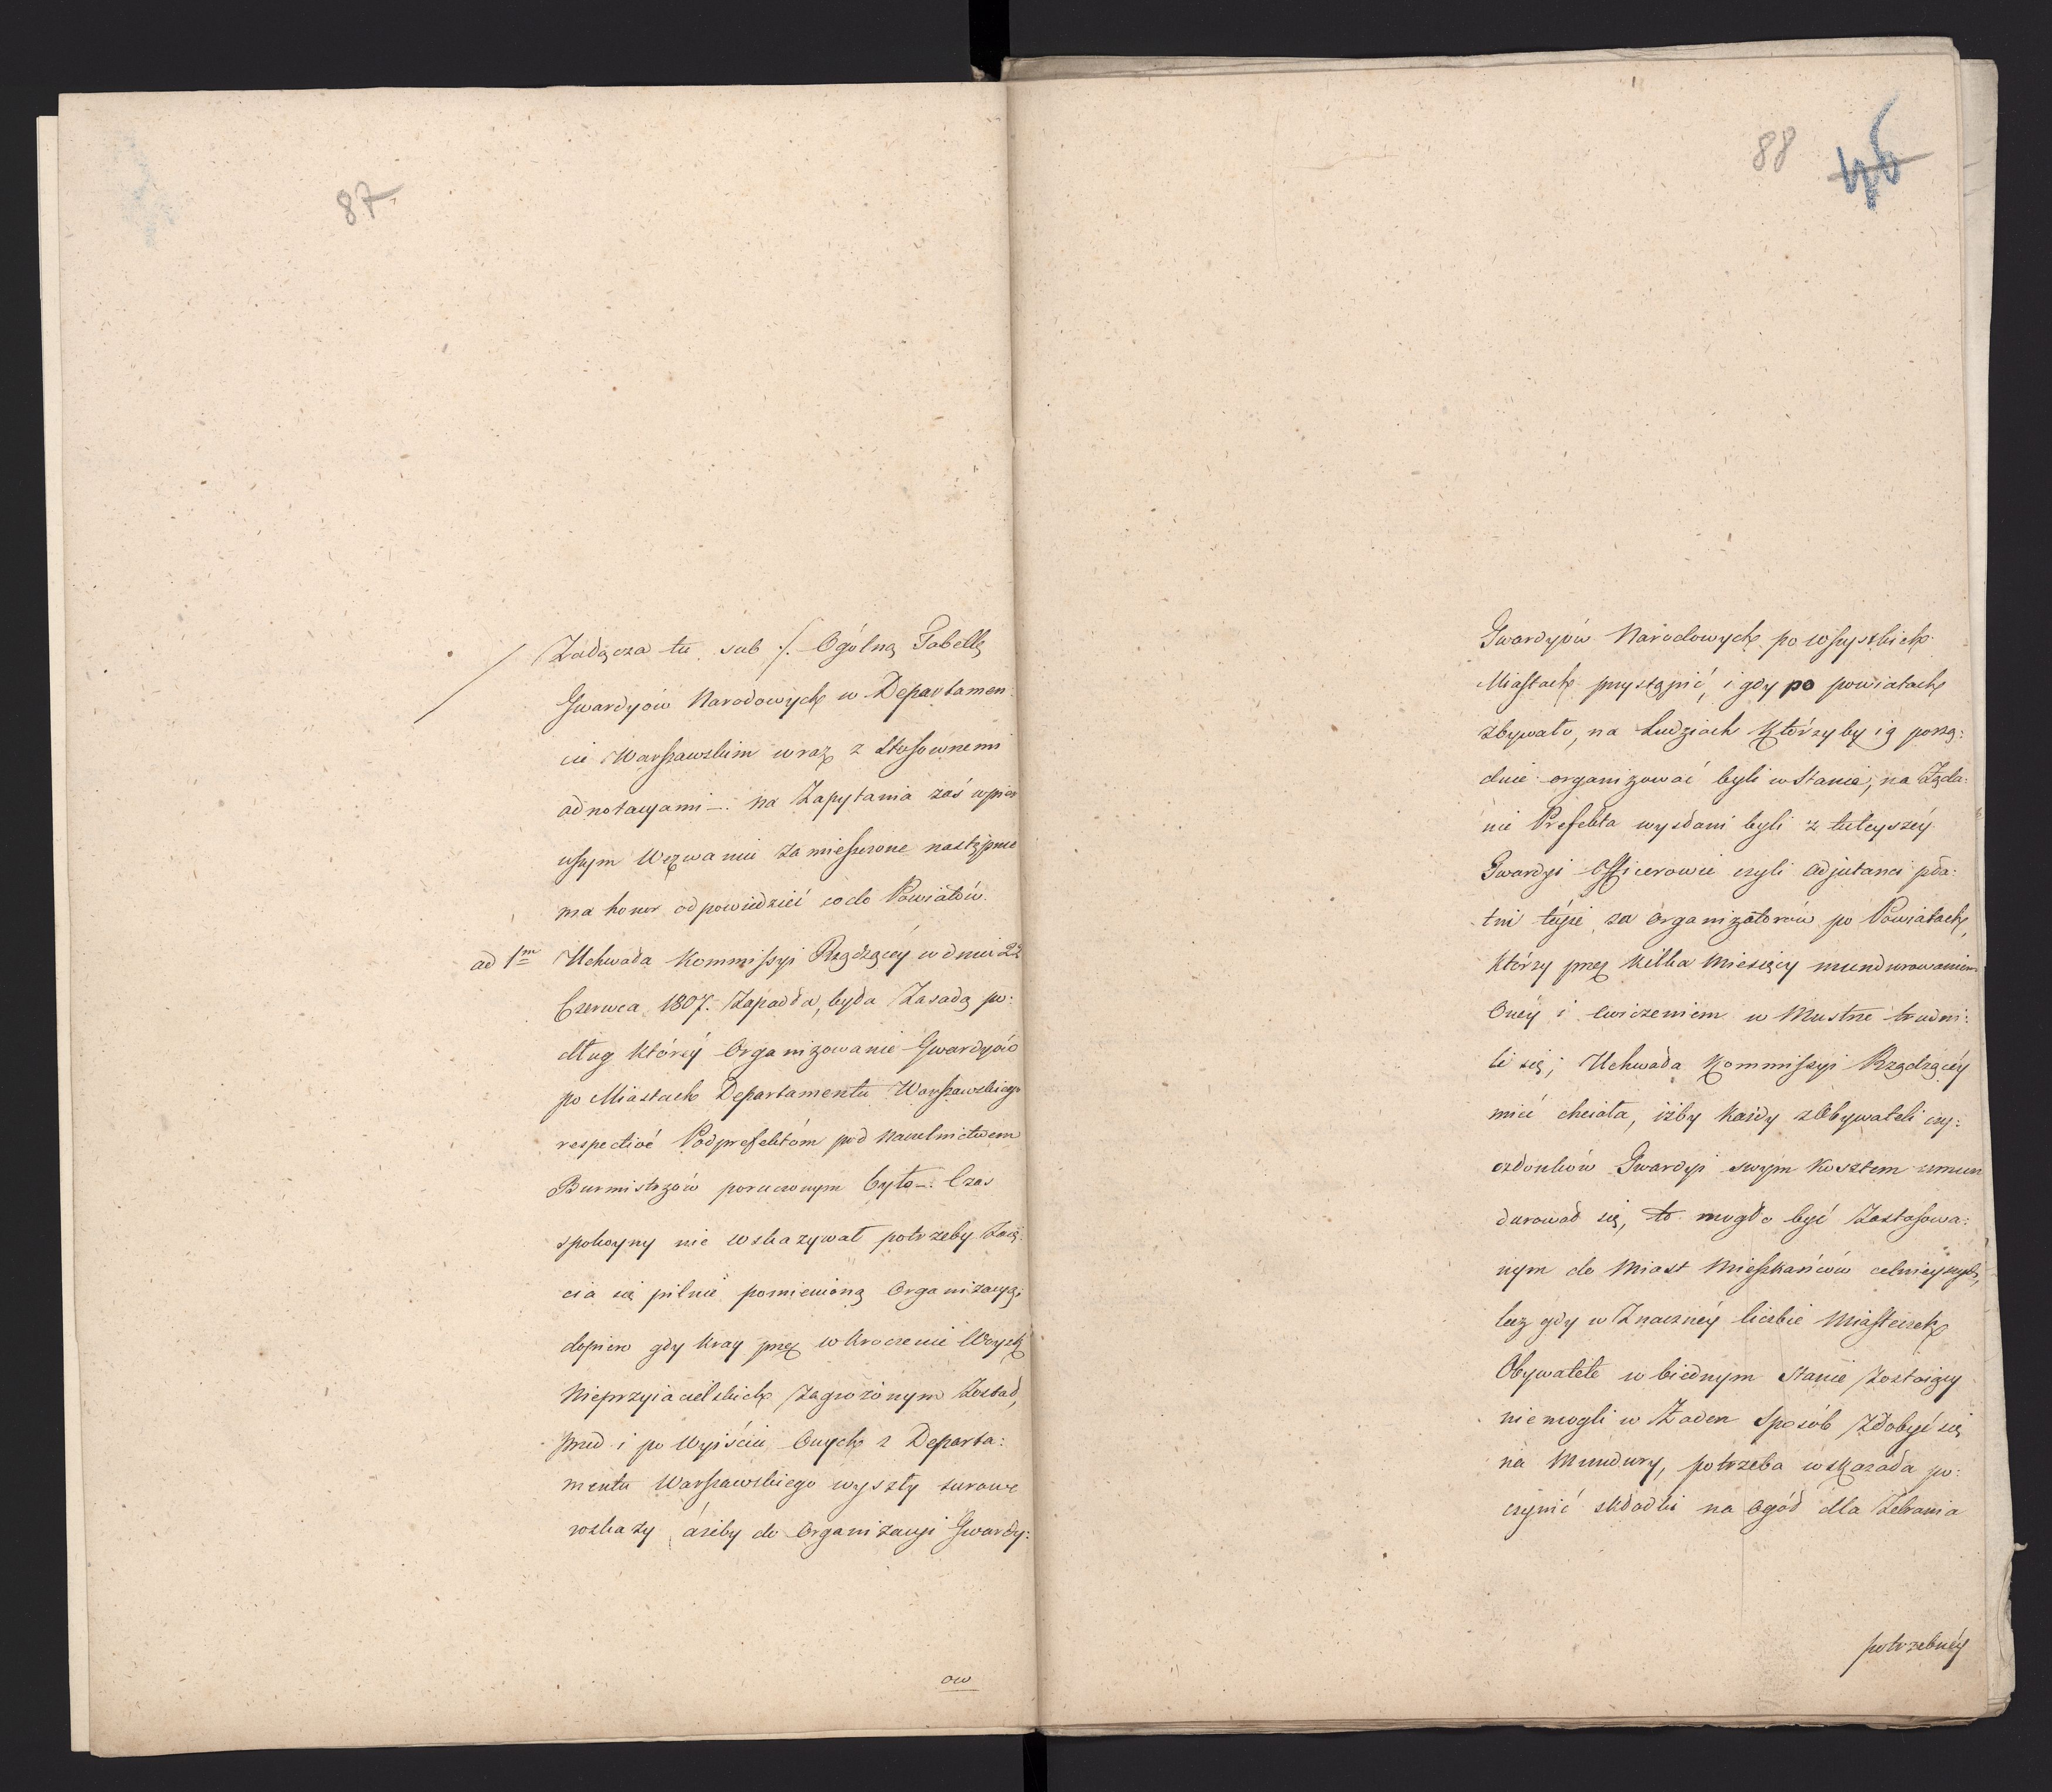 87
Załącza tu sub ./. Ogólną Tabellę
Gwardyów Narodowych w Departamen
cie Warszawskim wraz z stosownemi
adnotacyami —. na Zapytania zaś w pier
wszym Wezwaniu zamieszczone następnie
ma honor odpowiedzieć co do Powiatów.
ad 1m Uchwała Kommissyi Rządzącéy w dniu 22
Czerwca 1807. Zapadła, była Zasadą po:
dług któréy Organizowanie Gwardyów
po Miastach Departamentu Warszawskiego
respectivé Podprefektóm pod naczelnictwem
Burmistrzów poruczonym było —. Czas
spokoyny nie wskazywał potrzeby Zaię:
cia się pilnie pomienioną Organizacyą,
dopiero gdy Kray przez wkroczenie Woysk
Nieprzyiacielskich zagrożonym został,
przed i po Wyiściu Onych z Departa:
mentu Warszawskiego wyszły surowe
rozkazy ażeby do Organizacyi Gwardy:
ow
88
46
Gwardyów Narodowych po wszystkich
Miastach przystąpić, i gdy po powiatach
zbywało, na Ludziach Którzyby ią porzą:
dnie organizować byli w Stanie, na Żąda:
nie Prefekta wysłani byli z tuteyszéy
Gwardyi Officerowie czyli Adjutanci pła:
tni téyże za Organizatorów po Powiatach,
Którzy przez Kilka Miesięcy mundurowaniem
Onéy i cwiczeniem w Mustrze trudni:
li się; Uchwała Kommissyi Rządzącéy
mieć chciała, iżby Każdy z Obywateli czy:
członków Gwardyi swym Kosztem umun
durował się, to mogło być Zastosowa:
nym do Miast Mieszkańców celnieyszych,
lecz gdy w Znacznéy liczbie Miasteczek
Obywatele w biednym Stanie Zostaiący
nie mogli w Żaden Sposób Zdobyć się
na Mundury, potrzeba wskazała po:
czynić składki na Ogół dla Zebrania
potrzebnéy